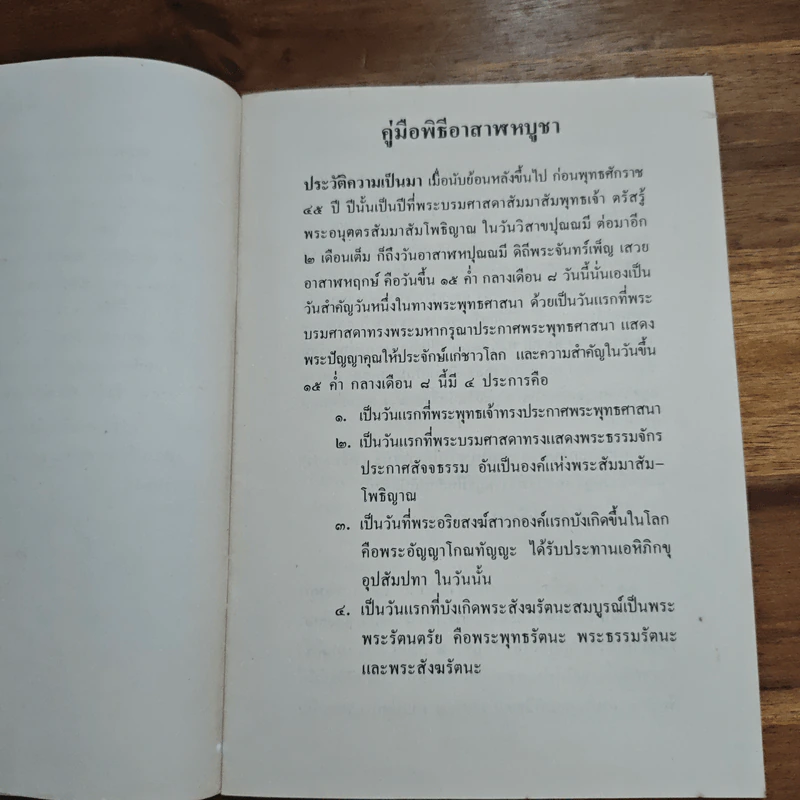 คู่มือพิธีอาสาฬหบูชา
ประวัติความเป็นมา เมื่อนับย้อนหลังขึ้นไป ก่อนพุทธศักราช
๔๕ ปี ปีนั้นเป็นปีที่พระบรมศาสดาสัมมาสัมพุทธเจ้า ตรัสรู้
พระอนุตตรสัมมาสัมโพธิญาณ ในวันวิสาขปุณณมี ต่อมาอีก
๒ เดือนเต็ม ก็ถึงวันอาสาฬหปุณณมี ดิถีพระจันทร์เพ็ญ เสวย
อาสาฬหฤกษ์ คือวันขึ้น ๑๕ ค่ำ กลางเดือน ๘ วันนี้นั่นเองเป็น
วันสำคัญวันหนึ่งในทางพระพุทธศาสนา ด้วยเป็นวันแรกที่พระ
บรมศาสดาทรงพระมหากรุณาประกาศพระพุทธศาสนา แสดง
พระปัญญาคุณให้ประจักษ์แก่ชาวโลก และความสำคัญในวันขึ้น
๑๕ ค่ำ กลางเดือน ๘ นี้มี ๔ ประการคือ
๑. เป็นวันแรกที่พระพุทธเจ้าทรงประกาศพระพุทธศาสนา
๒. เป็นวันแรกที่พระบรมศาสดาทรงแสดงพระธรรมจักร
ประกาศสัจจธรรม อันเป็นองค์แห่งพระสัมมาสัม–
โพธิญาณ
๓. เป็นวันที่พระอริยสงฆ์สาวกองค์แรกบังเกิดขึ้นในโลก
คือพระอัญญาโกณฑัญญะ ได้รับประทานเอหิภิกขุ
อุปสัมปทา ในวันนั้น
๔. เป็นวันแรกที่บังเกิดพระสังฆรัตนะสมบูรณ์เป็นพระ
พระรัตนตรัย คือพระพุทธรัตนะ พระธรรมรัตนะ
และพระสังฆรัตนะ